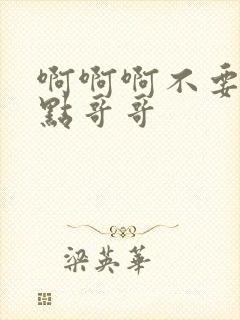 啊啊啊不要
點哥哥
梁英華